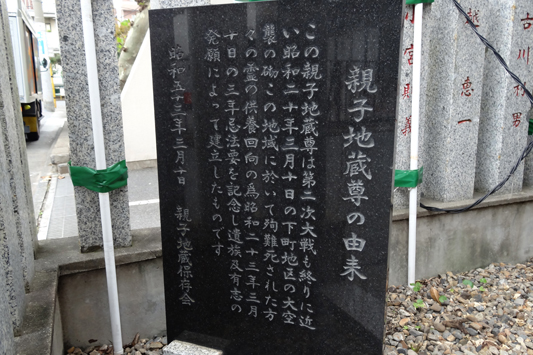 親子地蔵尊の由来
この親子地蔵尊は第二次大戦も終りに近
い昭和二十年三月十日の下町地区の大空
襲の砌この地域に於いて殉難死された方
々の霊の供養回向の為昭和二十三年三月
十日の三年忌法要を記念し遺族及有志の
発願によって建立したものです
昭和五十三年三月十日 親子地蔵保存会